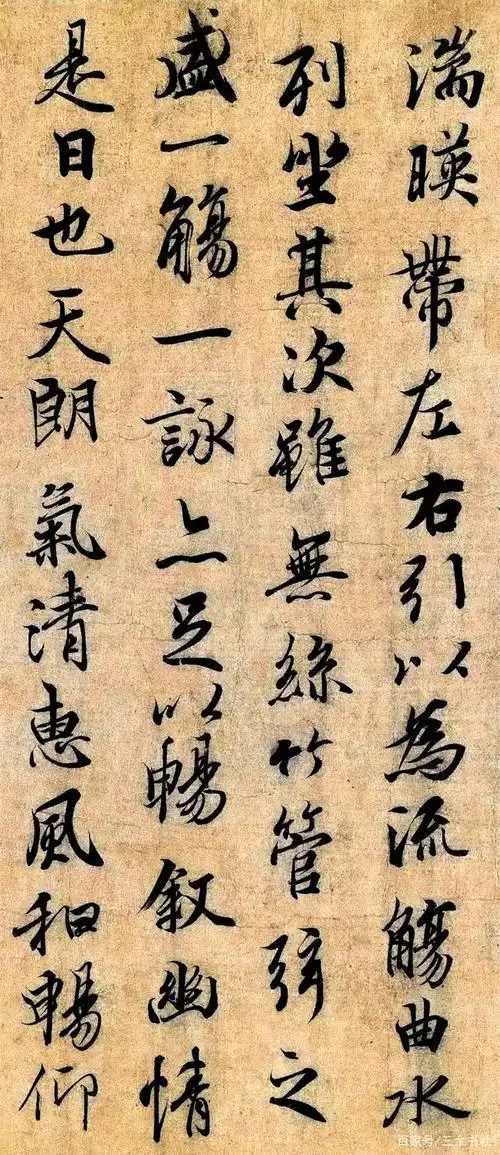 湍暎帶左右引以為流觴曲水
列坐其次雖無絲竹管弦之
盛一觴一詠亦足以暢叙幽情
是日也天朗氣清惠風和暢仰
百家号/三余书社